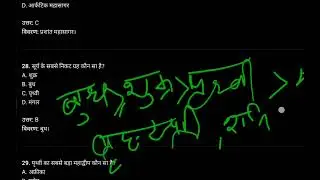 D. आर्कटिक महासागर
उत्तर: C
विवरण: प्रशांत महासागर।
28. सूर्य के सबसे निकट ग्रह कौन सा है?
A. शुक्र
B. बुध
C. पृथ्वी
D. मंगल
बुध > शुक्र > पृथ्वी >
उत्तर: B
विवरण: बुध।
29. पृथ्वी का सबसे बड़ा महाद्वीप कौन सा है?
A. अफ्रीका